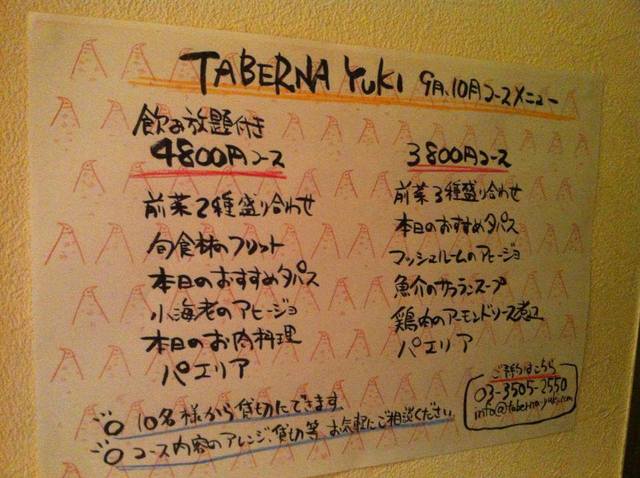 TABERNA YUKI 9月、10月コースメニュー
飲み放題付き
4800円コース
前菜2種盛り合わせ
旬食材のフリット
本日のおすすめタパス
小海老のアヒージョ
本日のお肉料理
パエリア
3800円コース
前菜3種盛り合わせ
本日のおすすめタパス
マッシュルームのアヒージョ
魚介のサフランスープ
鶏肉のアーモンドソース煮込
パエリア
○ 10名様から貸切にできます
○ コース内容のアレンジ、貸切等 お気軽にご相談ください
ご予約はこちら
03-3505-2550
info@taberna-yuki.com